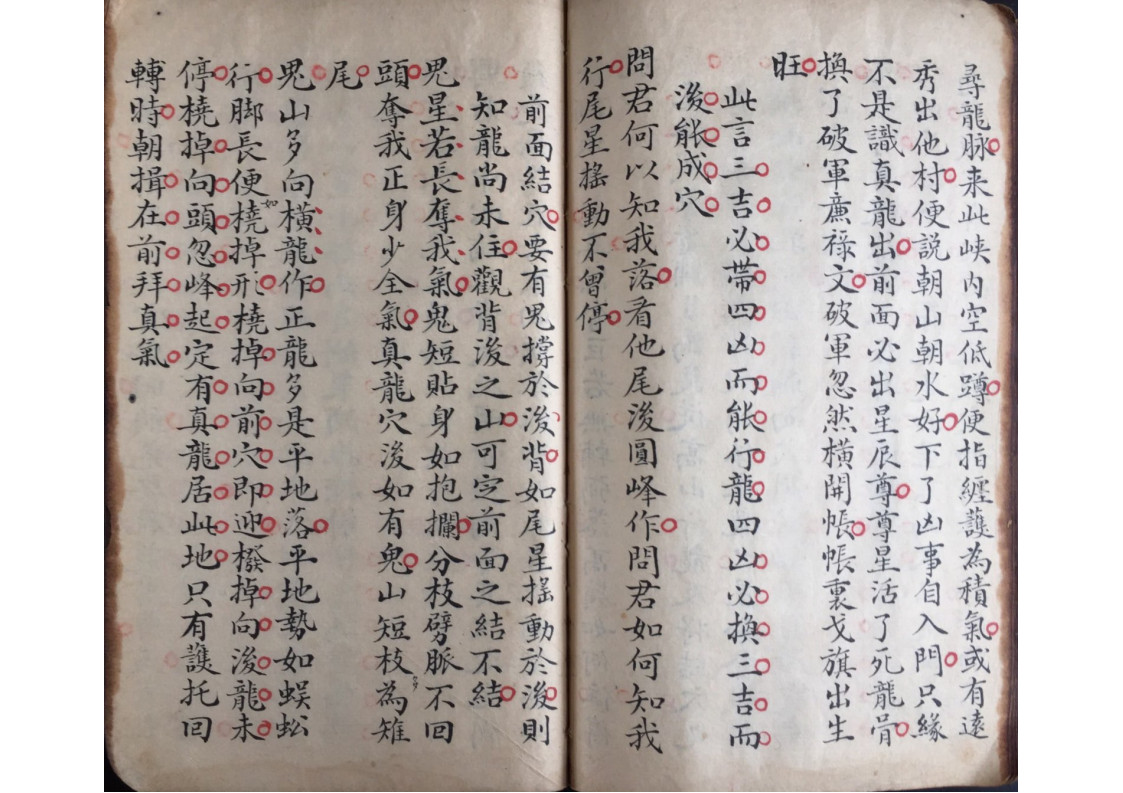 尋龍脉来此峽内空低蹲便指纒䕶為積氣或有遠
秀出他村便説朝山朝水好下了凶事自入門只緣
不是識真龍出前面必出星辰尊尊星活了死龍骨
換了破軍廉祿文破軍忽然横開帳帳裏戈旗出生
旺
此言三吉必帶四凶而能行龍四凶必換三吉而
後能成穴
問君何以知我落看他尾後圓峰作問君如何知我
行尾星摇動不曾停
前面結穴要有鬼撐於後背如尾星摇動於後則
知龍尚未住觀背後之山可定前面之結不結
鬼星若長奪我氣鬼短貼身如抱攔分枝劈脈不回
頭奪我正身少全氣真龍穴後如有鬼山短枝多為雉
尾
鬼山多向横龍作正龍多是平地落平地勢如蜈蚣
行脚長便如橈掉形橈掉向前穴即迎撥掉向後龍未
停橈掉向頭忽峰起定有真龍居此地只有䕶托回
轉時朝揖在前拜真氣